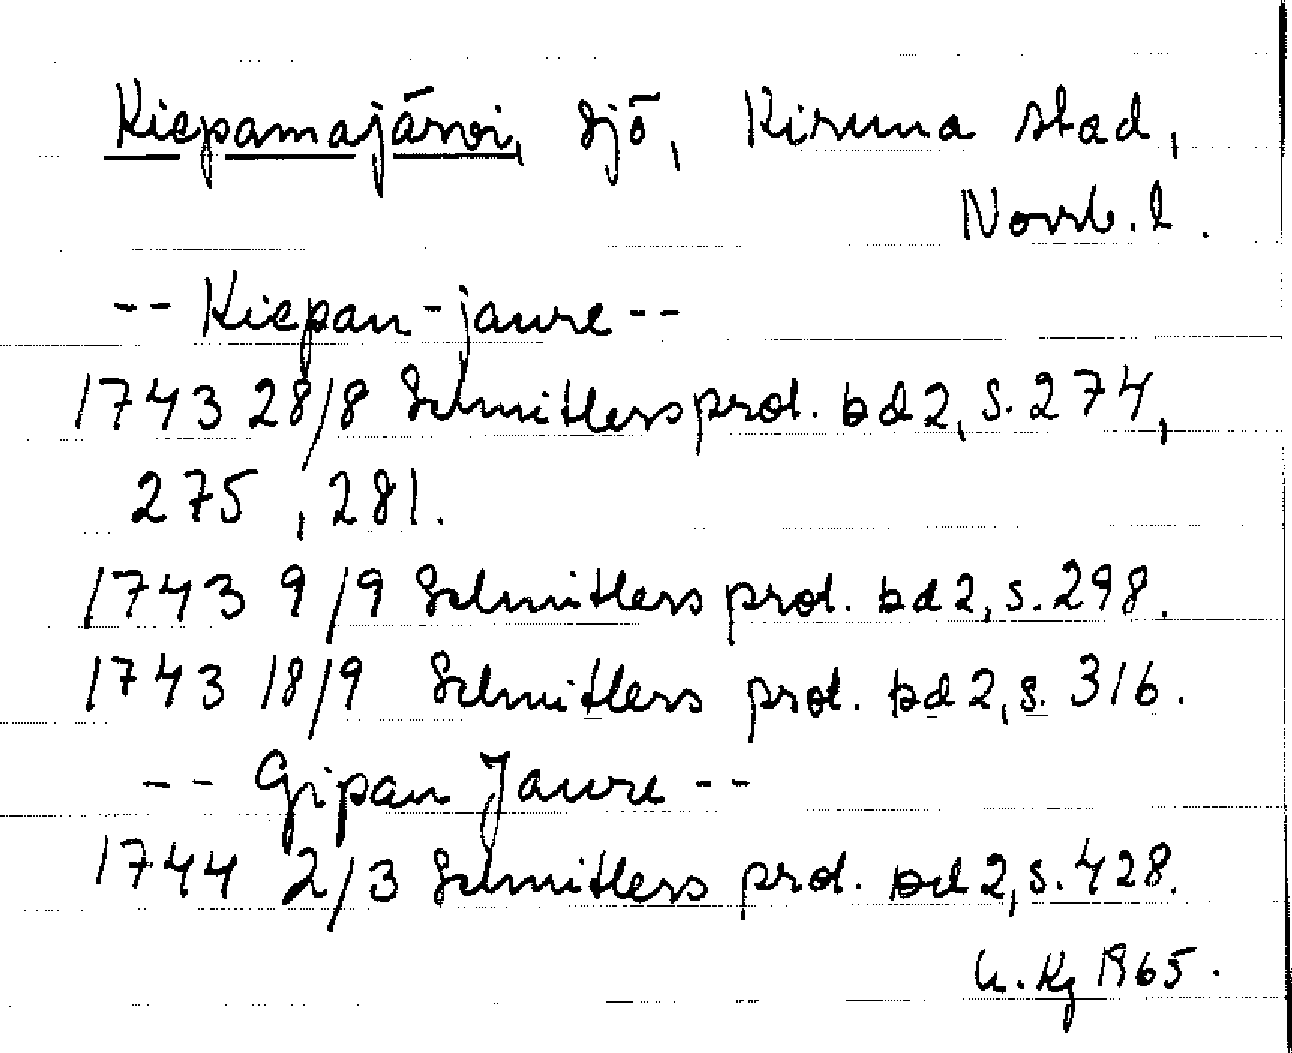 Kiepamajärvi, sjö, Kiruna stad,
Norrb. l.
-- Kiepan-jaure --
1743 28/8 Schnitlers prot. bd 2, s. 274,
275, 281.
1743 9/9 Schnitlers prot. bd 2, s. 298.
1743 18/9 Schnitlers prot. bd 2, s. 316.
-- Gipan Jaure --
1744 2/3 Schnitlers prot. bd 2, s. 428.
1965.